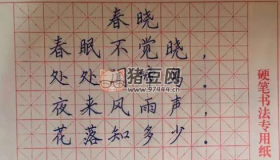 春晓
春眠不觉晓，
处处
猪豆网
www.97944.cn
夜来风雨声，
花落知多少．
硬笔书法专用纸